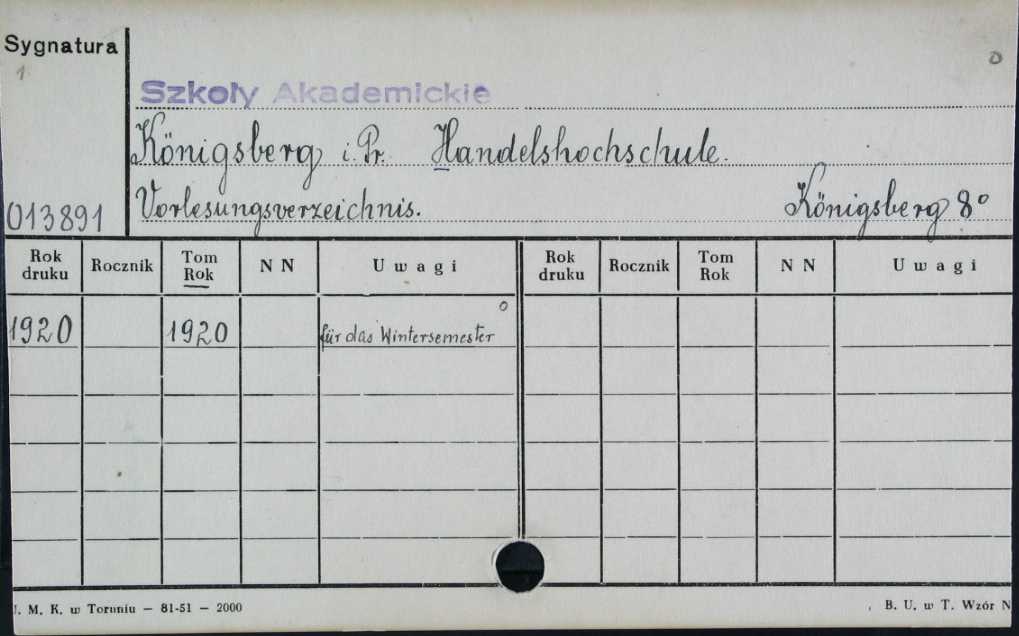 Sygnatura
1
Szkoły Akademickie
Königsberg i. Pr. Handelshochschule.
Vorlesungsverzeichnis. Königsberg 8°
013891
Rok druku Rocznik Tom Rok N N Uwagi Rok druku Rocznik Tom Rok N N Uwagi
1920 1920 für das Wintersemester
M. K. w Toruniu — 81-51 — 2000
B. U. w T. Wzór N